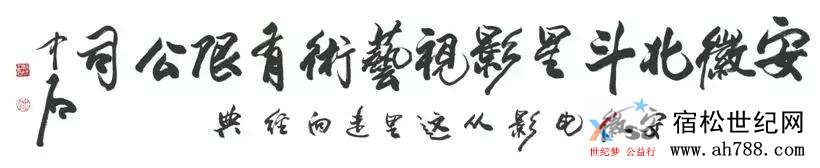 安徽北斗星影視藝術有限公司
安徽电影从这里走向经典
中石
宿松世纪网
世纪梦 公益行
www.ah788.com